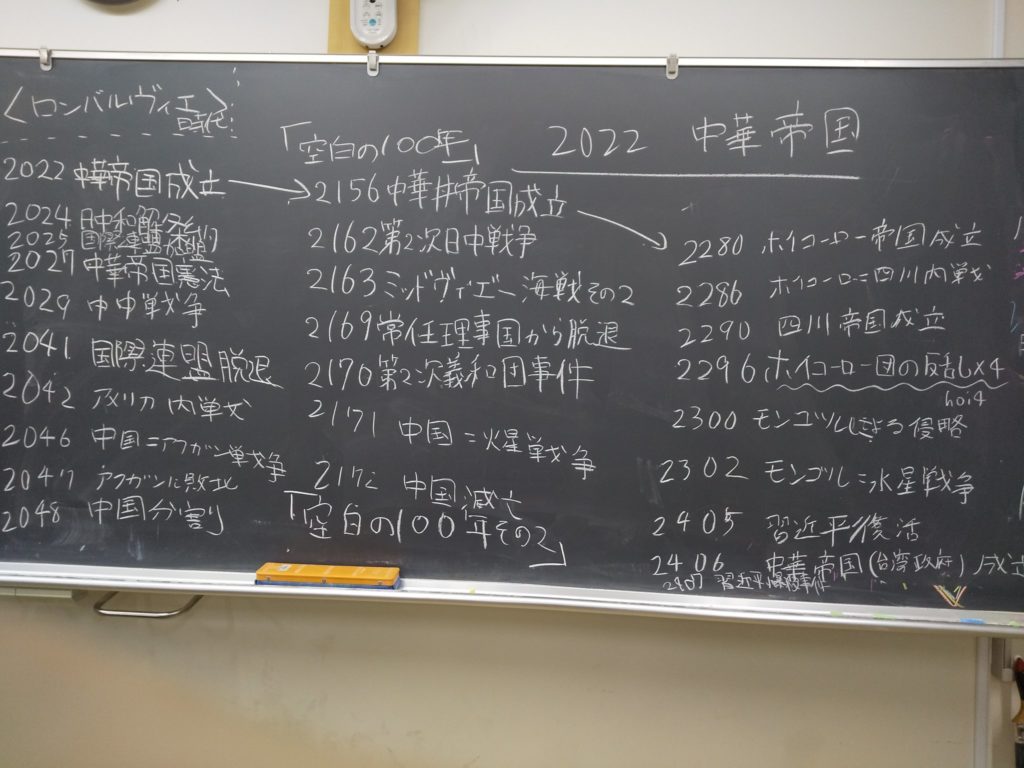 〈ロンバルヴィエ〉
時代
2022 中華帝国成立
2024 日中和解
2025 国際連盟
2027 中華帝国憲法
2029 中中戦争
2041 国際連盟脱退
2042 アメリカ内戦
2046 中国=アフガン戦争
2047 アフガンに敗北
2048 中国分割
「空白の100年」
2156 中華丼帝国成立
2162 第2次日中戦争
2163 ミッドヴィエー海戦その2
2169 常任理事国から脱退
2170 第2次義和団事件
2171 中国=火星戦争
2172 中国滅亡
「空白の100年その2」
2022 中華帝国
2280 ホイコーロー帝国成立
2286 ホイコーロー=四川内戦
2290 四川帝国成立
2296 ホイコーロー団の反乱×4
hoi4
2300 モンゴルによる侵略
2302 モンゴル=水星戦争
2405 習近平復活
2406 中華帝国(台湾政府)成立
2407 習近平